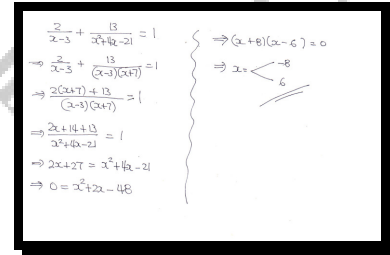 2/(x-3) + 13/(x²+4x-21) = 1
⇒ 2/(x-3) + 13/((x-3)(x+7)) = 1
⇒ (2(x+7)+13)/((x-3)(x+7)) = 1
⇒ (2x+14+13)/(x²+4x-21) = 1
⇒ 2x+27 = x²+4x-21
⇒ 0 = x²+2x-48
⇒ (x+8)(x-6) = 0
⇒ x = -8
6